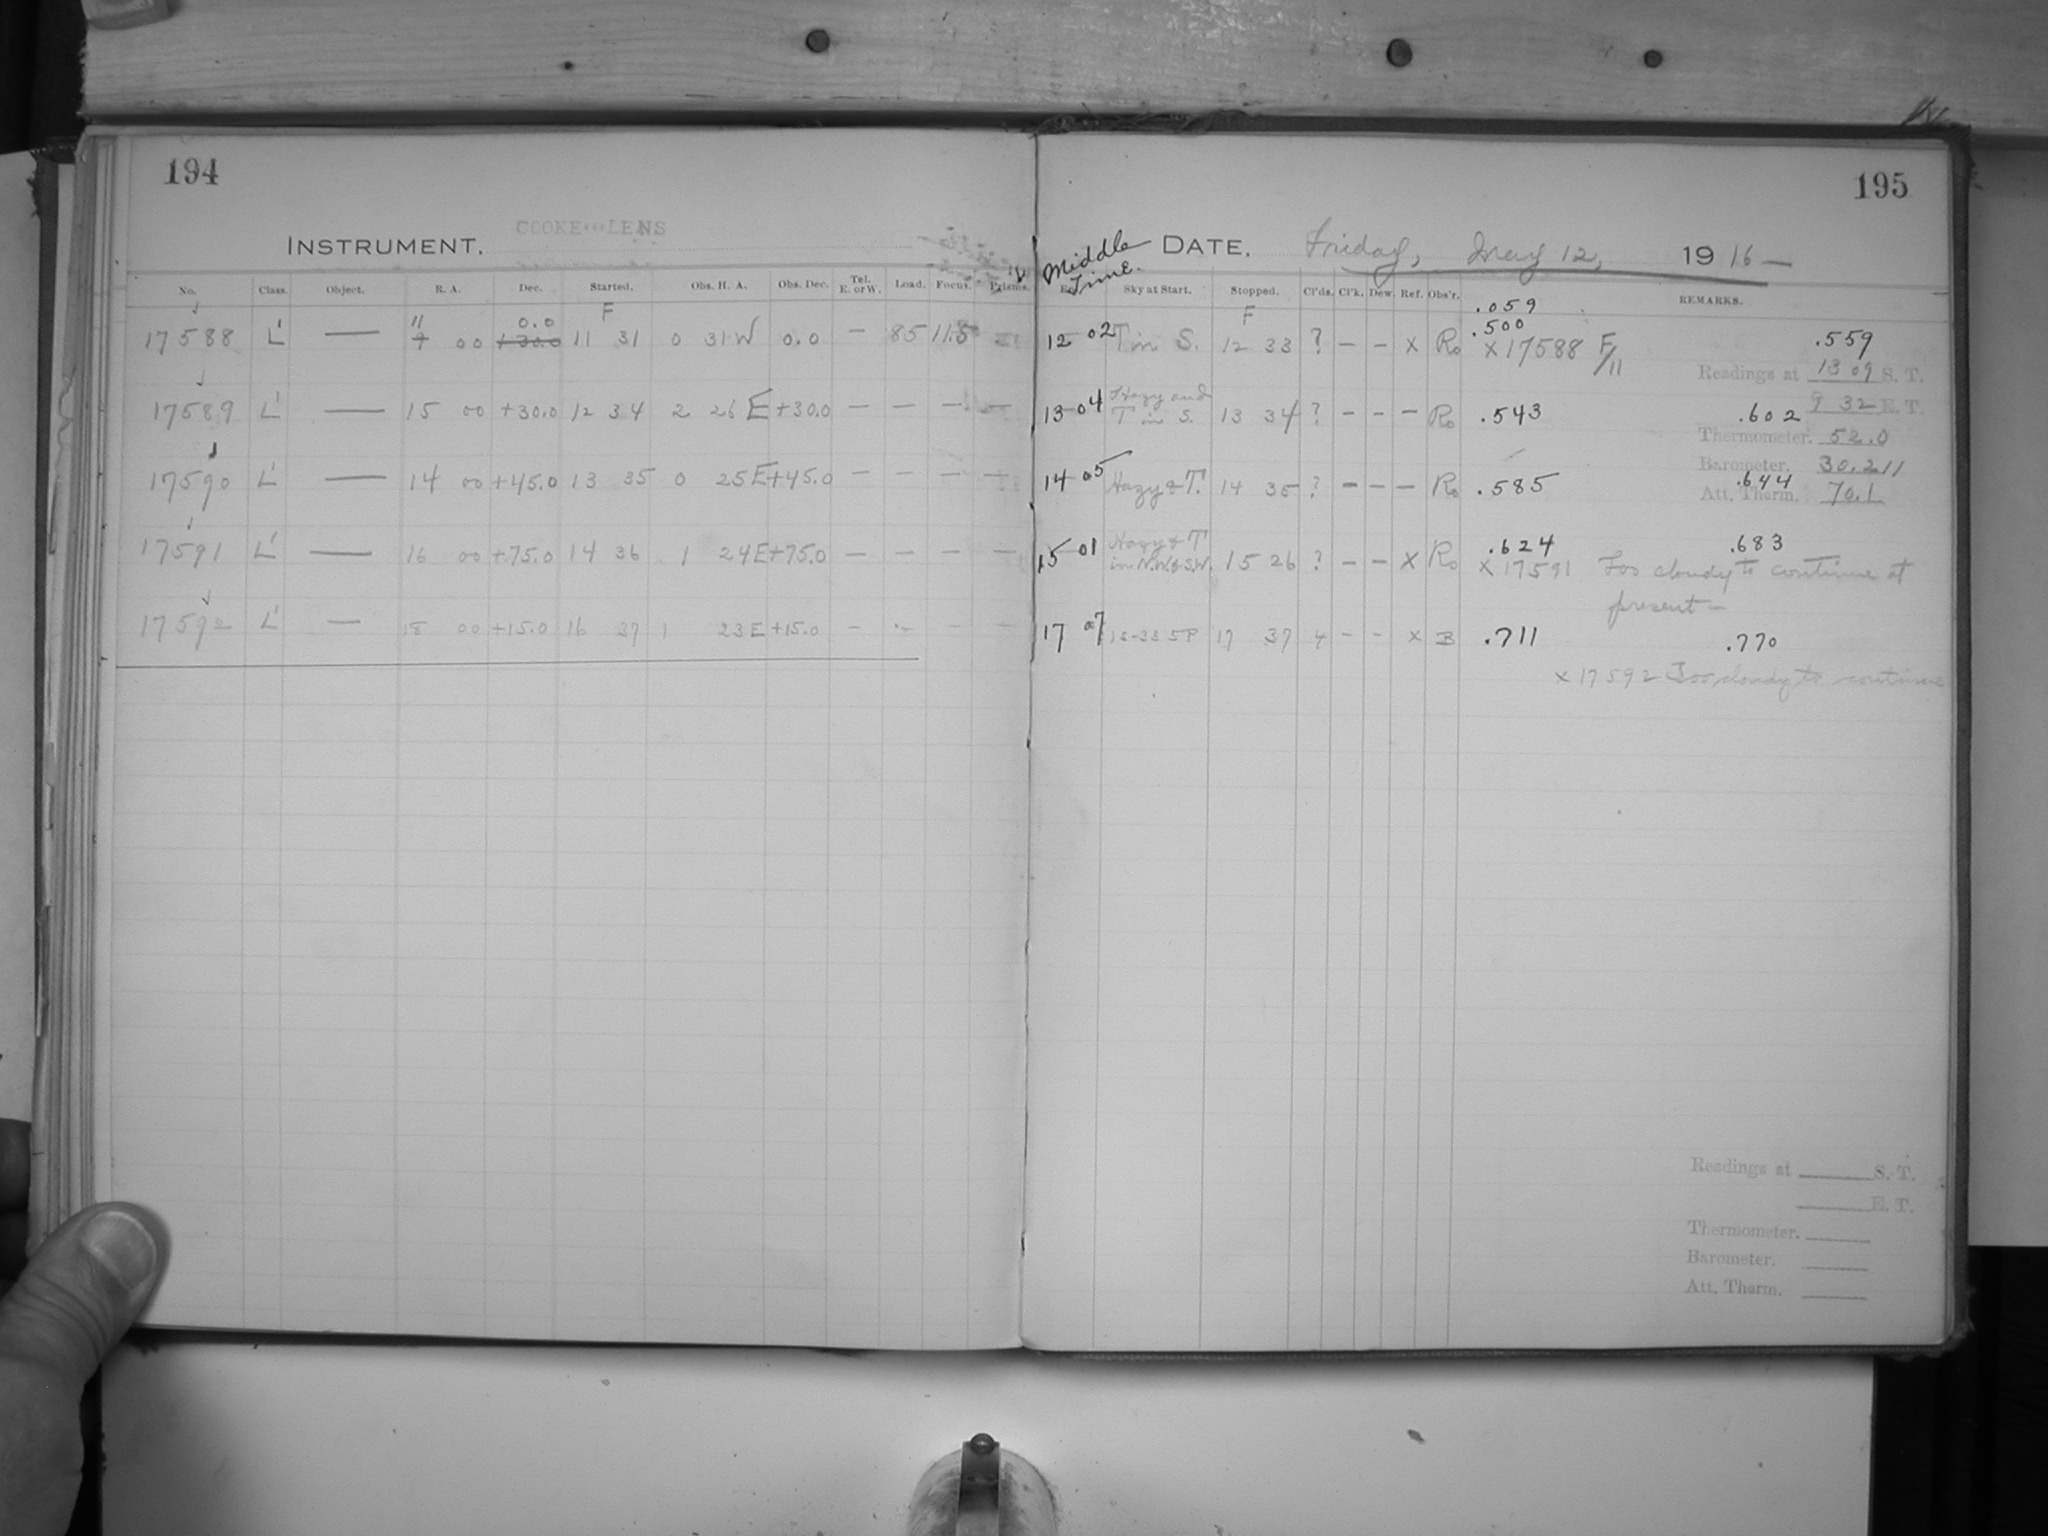 194
COOKE LENS
INSTRUMENT.
No. Class. Object. R. A. Dec. Started. Obs. H. A. Obs. Dec. Tel. E. or W. Load. Focus. Prisms.
F
11 0.0
17588 L' — 7 00 +30.0 11 31 0 31 W 0.0 — 85 11.5
17589 L' — 15 00 +30.0 12 34 2 26 E +30.0 — — — —
17590 L' — 14 00 +45.0 13 35 0 25 E +45.0 — — — —
17591 L' — 16 00 +75.0 14 36 1 24 E +75.0 — — — —
17592 L' — 18 00 +15.0 16 37 1 23 E +15.0 — — — —
195
Middle Time.
DATE. Friday, May 12, 1916
Sky at Start. Stopped. Cl'ds. Cl'k. Dew. Ref. Obs'r. REMARKS.
F .059
.500
12 02 T in S. 12 33 ? — — x Ro x 17588 F/11 .559
Readings at 13 09 S. T.
9 32 E. T.
13 04 Hazy and T in S. 13 34 ? — — — Ro .543 .602
Thermometer. 52.0
Barometer. 30.211
14 05 Hazy & T. 14 35 ? — — — Ro .585 .644
Att. Therm. 70.1
15 01 Hazy & T in N.W. & S.W. 15 26 ? — — x Ro .624 .683
x 17591 Too cloudy to continue at
present —
17 07 17 37 4 — — x B .711 .770
x 17592 Too cloudy to continue
Readings at S. T.
E. T.
Thermometer.
Barometer.
Att. Therm.